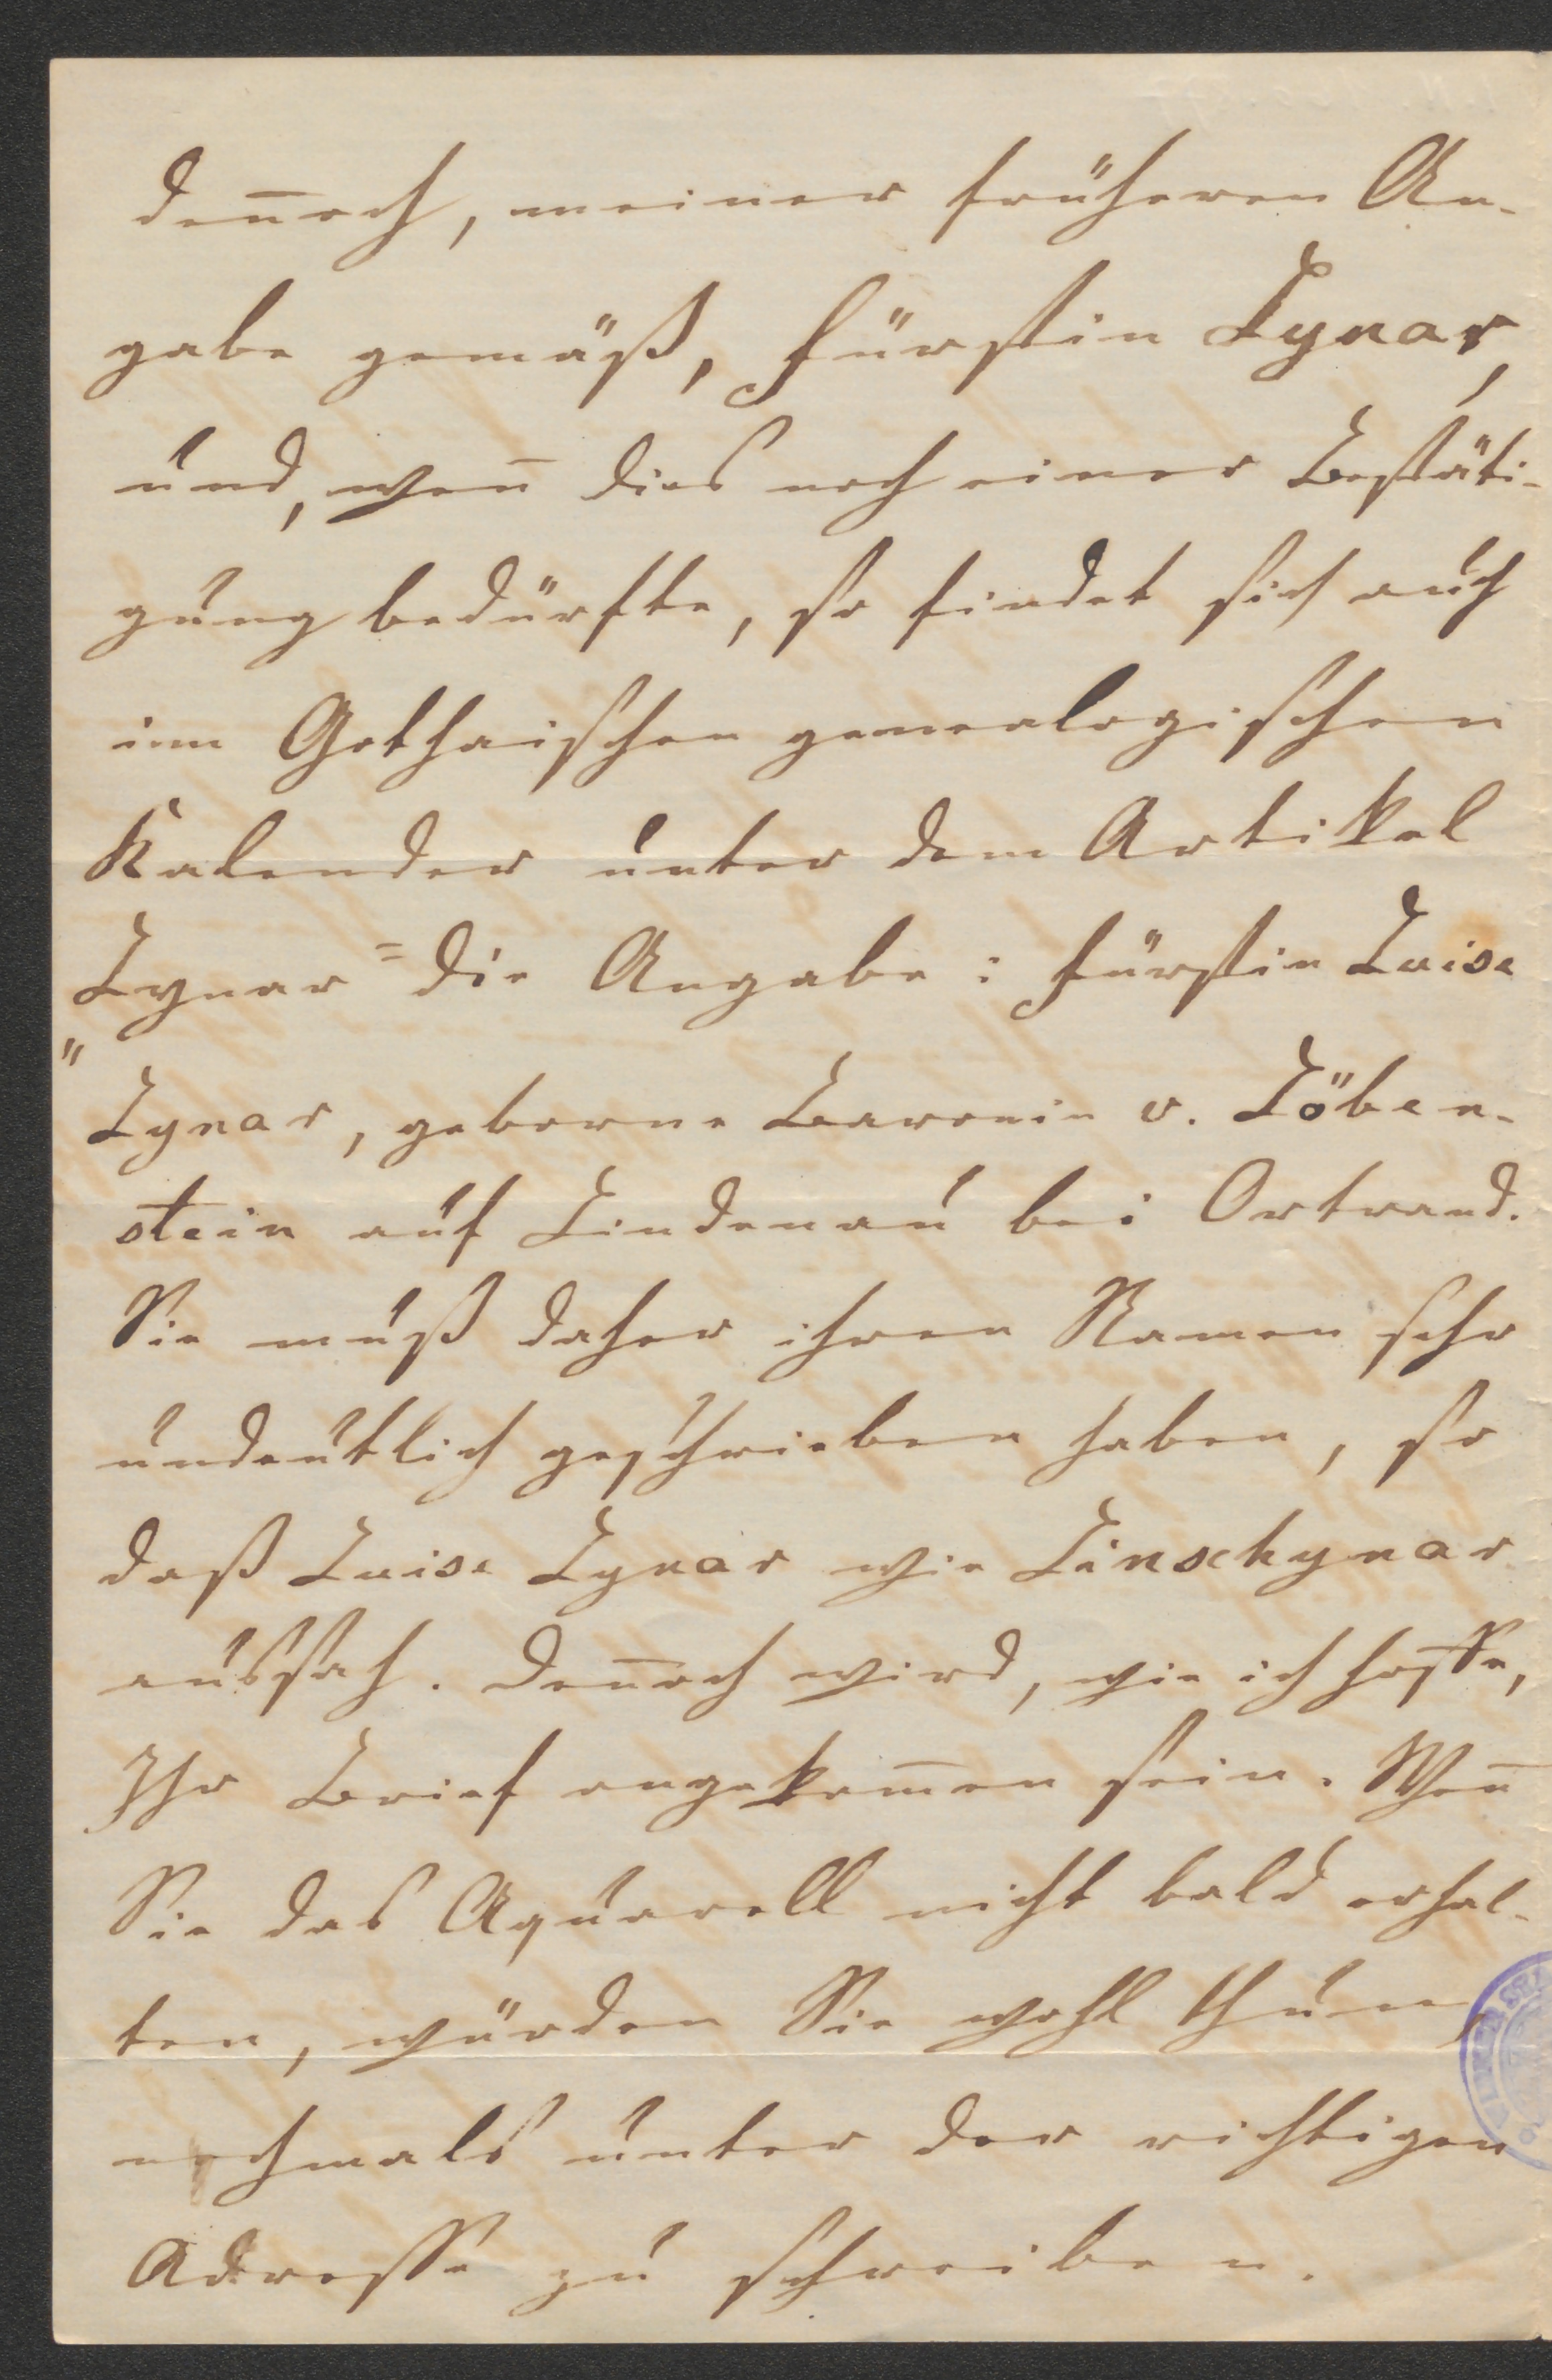 den̅och, meiner früheren An-
gabe gemäß, Fürstin Lynar,
und, wen̅ dies noch einer Bestäti-
gung bedürfte, so findet sich auch
im Gothaischen genealogischen
Kalender unter dem Artikel
„Lynar“ die Angabe: Fürstin Luise
Lynar, geborne Baronin v. Löben-
stein auf Lindenau bei Ortrand.
Sie muß daher ihren Namen sehr
undeutlich geschrieben haben, so
daß Luise Lynar wie Linschynar
aussah. Den̅och wird, wie ich hoffe,
Ihr Brief angekom̅en sein. Wen̅
Sie das Aquarell nicht bald erhal-
ten, würden Sie wohl thun,
nochmals unter der richtigen
Adresse zu schreiben.